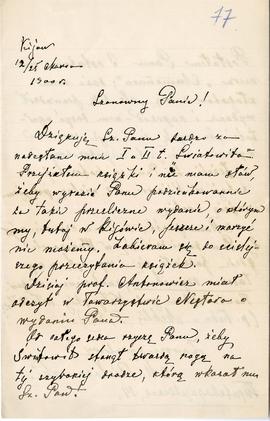 77
Kijów
12/25 Marca
1900 r.
Szanowny Panie!
Dziękuję Sz. Panu bardzo za
nadesłane mnie I a II t. "Światowita".
Przejrzałem książki i nie mam słów,
żeby wyrazić Panu podziękowanie
za takie prześliczne wydanie, o którym
my, tutaj w Kijowie, jeszcze i marzyć
nie możemy. Zabieram się do ściślej-
szego przeczytania książek.
Dzisiaj prof. Antonowicz miał
odczyt w Towarzystwie Nestora o
wydaniu Pana.
Od całego serca życzę Panu, żeby
Światowit stanął twardą nogą na
tej drodze, którą wskazał mu
Sz. Pan.